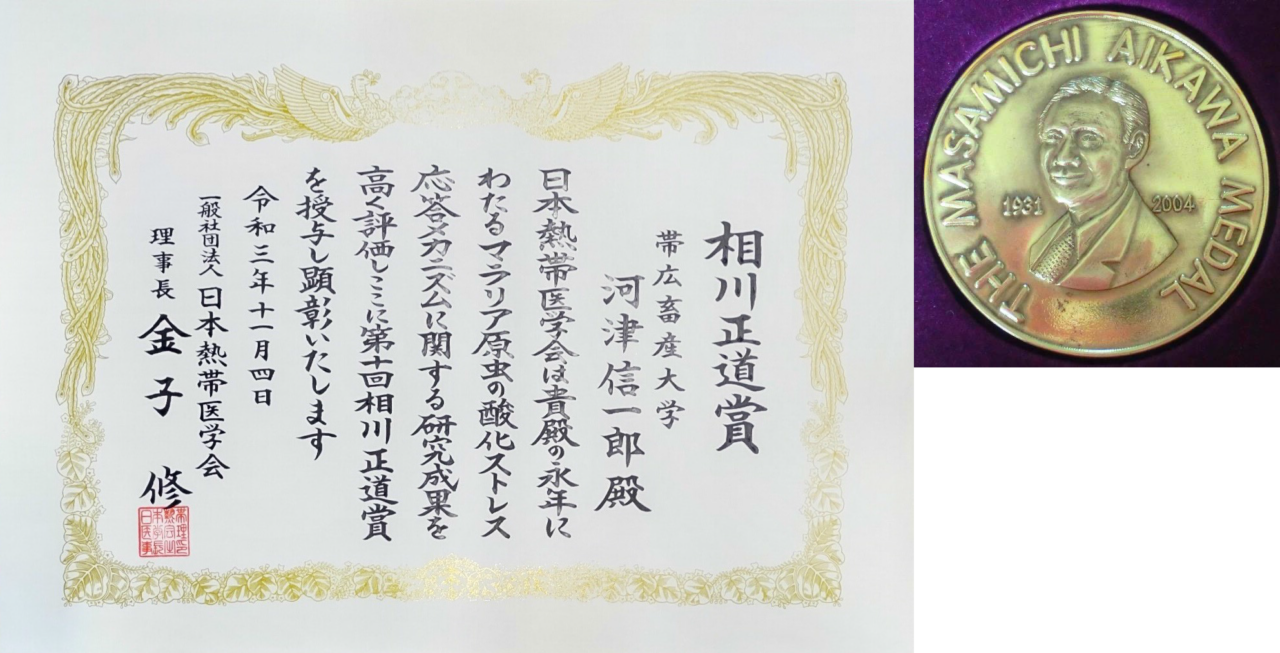 相川正道賞
帯広畜産大学
河津信一郎殿
日本熱帯医学会は貴殿の永年に
わたるマラリア原虫の酸化ストレス
応答メカニズムに関する研究成果を
高く評価しここに第十回相川正道賞
を授与し顕彰いたします
令和三年十一月四日
一般社団法人 日本熱帯医学会
理事長 金子 修
THE MASAMICHI AIKAWA MEDAL
1931 2004